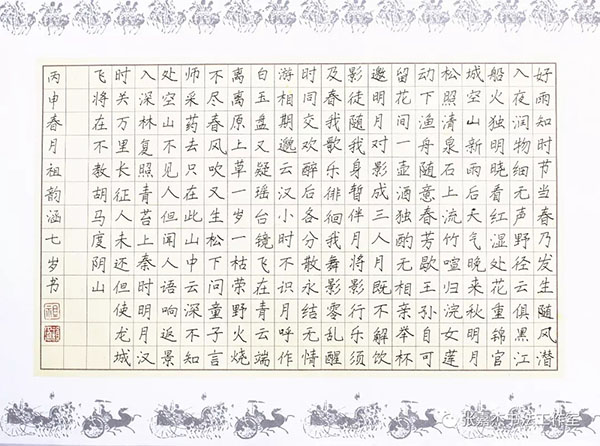 好雨知时节当春乃发生随风潜
入夜润物细无声野径云俱黑江
船火独明晓看红湿处花重锦官
城空山新雨后天气晚来秋明月
松照清泉石上流竹喧归浣女莲
动下渔舟随意春芳歇王孙自可
留花间一壶酒独酌无相亲举杯
邀明月对影成三人月既不解饮
影徒随我身暂伴月将影行乐须
及春我歌月徘徊我舞影零乱醒
时同交欢醉后各分散永结无情
游相期邈云汉小时不识月呼作
白玉盘又疑瑶台镜飞在青云端
离离原上草一岁一枯荣野火烧
不尽春风吹又生松下问童子言
师采药去只在此山中云深不知
处空山不见人但闻人语响返景
入深林复照青苔上秦时明月汉
时关万里长征人未还但使龙城
飞将在不教胡马度阴山
丙申春月祖韵涵七岁书
书法工作室